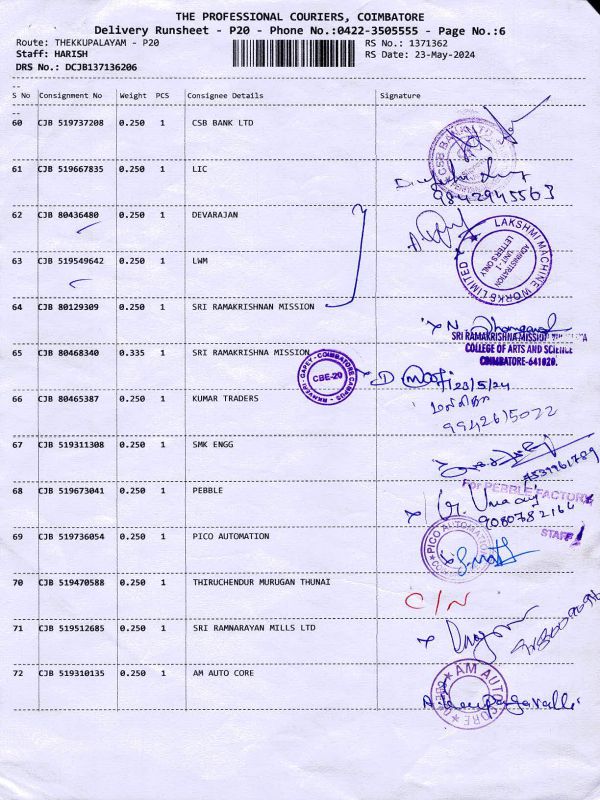 THE PROFESSIONAL COURIERS, COIMBATORE
Delivery Runsheet - P20 - Phone No.:0422-3505555 - Page No.:6
Route: THEKKUPALAYAM - P20 RS No.: 1371362
Staff: HARISH RS Date: 23-May-2024
DRS No.: DCJB137136206
--
S No Consignment No Weight PCS Consignee Details Signature
--
60 CJB 519737208 0.250 1 CSB BANK LTD
61 CJB 519667835 0.250 1 LIC
9842945563
62 CJB 80436480 0.250 1 DEVARAJAN
63 CJB 519549642 0.250 1 LWM
LAKSHMI MACHINE WORKS LIMITED
ADMINISTRATION
UNIT - I
LETTERS ONLY
64 CJB 80129309 0.250 1 SRI RAMAKRISHNAN MISSION
SRI RAMAKRISHNA MISSION
COLLEGE OF ARTS AND SCIENCE
COIMBATORE-641020.
65 CJB 80468340 0.335 1 SRI RAMAKRISHNA MISSION
COIMBATORE CAMPUS
CBE-20
23/5/24
66 CJB 80465387 0.250 1 KUMAR TRADERS
9942615022
67 CJB 519311308 0.250 1 SMK ENGG
68 CJB 519673041 0.250 1 PEBBLE
For PEBBLE FACTORY
9080782166
STAFF
69 CJB 519736054 0.250 1 PICO AUTOMATION
PICO AUTOMATION
70 CJB 519470588 0.250 1 THIRUCHENDUR MURUGAN THUNAI
C/N
71 CJB 519512685 0.250 1 SRI RAMNARAYAN MILLS LTD
72 CJB 519310135 0.250 1 AM AUTO CORE
AM AUTO CORE